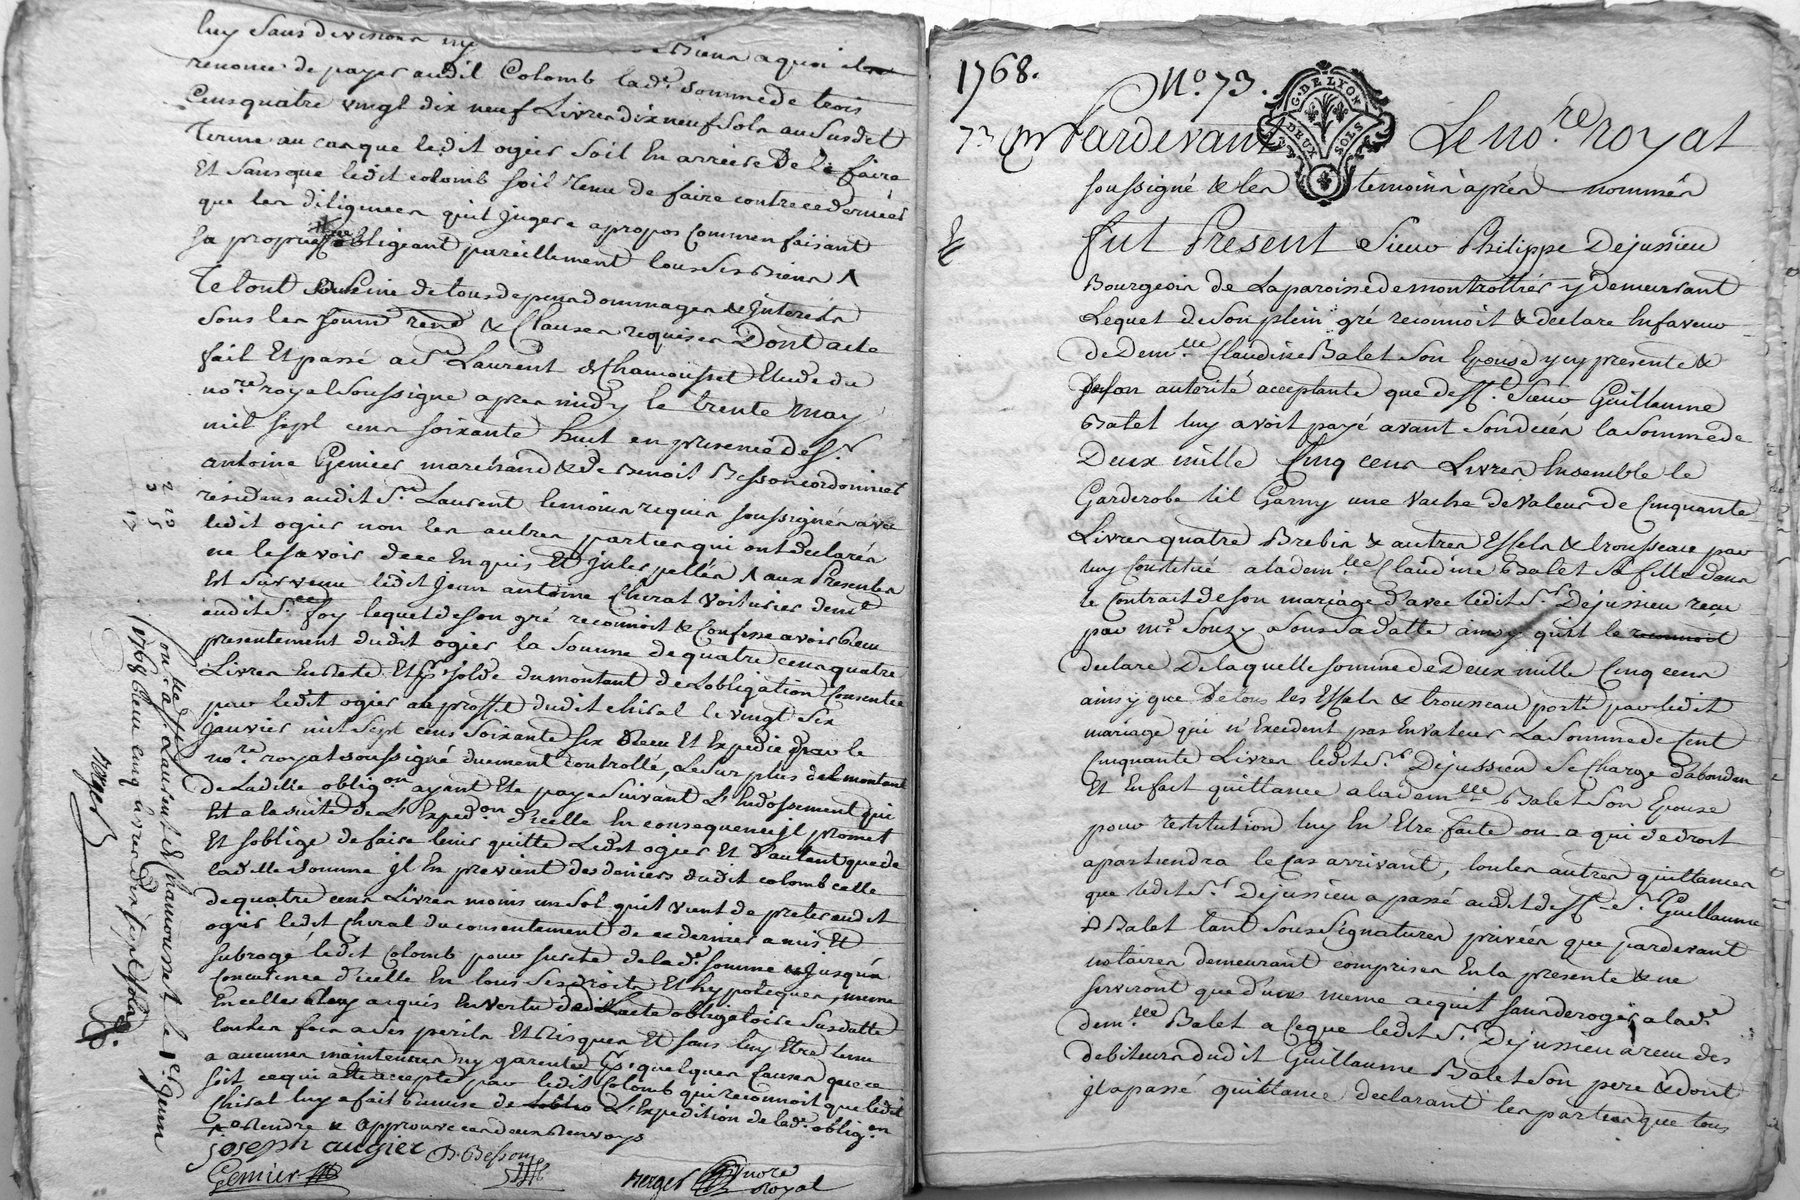 luy sans division ny biens a quoi il
renonce de payer audit Colomb lad. somme de trois
Cens quatre vingt dix neuf Livres dix neuf sols au susdit
Terme au cas que ledit ogier soit En arriere De le faire
Et sans que ledit colomb soit Tenu de faire contre ce dernier
que les diligences qu'il jugera apropos Comme en faisant
sa propre obligeant pareillement tous ses Biens
Le tout a peine de tous depens dommages & Interets
sous les soum. renō. & Clauses requises Dont acte
fait Et passé a St. Laurent de Chamousset Etude du
no.re royal soussigné apres midy le trente may
mil sept cens soixante huit en presence de Sr.
antoine Genier marchand & de Benoit Besson cordonnier
residens audit St. Laurent temoins requis soussignés avec
ledit ogier non les autres parties qui ont declarés
ne le savoir de ce Enquis Et jnterpellés aux Presentes
Est survenu ledit Jean antoine Chirat voiturier demt.
audit Ste. foy lequel de son gré reconnoit & Confesse avoir Eceu
presentement dudit ogier la somme de quatre cens quatre
Livres En reste Et pr. solde du montant de L'obligation Consentie
par ledit ogier au proffit dudit chirat le vingt six
janvier mil sept cens soixante six Receu Et Expedie par le
no.re royal soussigné duement controllé, Le surplus du montant
de Ladite oblig.on ayant Eté payé suivant L'Endossement qui
Est a la suite de L'Exped.on d'icelle En consequence jl promet
Et soblige de faire tenir quitte Ledit ogier Et D'autant que de
ladite somme jl En provient des deniers dudit colomb celle
de quatre cens Livres moins un sol qu'il vient de preter audit
ogier ledit Chirat du consentement de ce dernier a mis Et
subrogé ledit Colomb pour sureté de lad. somme & jusqu'a
Concurrence d'icelle En tous ses droits Et hypoteques, meme
En celles a luy acquis En vertu de L'acte obligatoire susdatté
toutes fois a ses perils Et Risques Et sans luy Etre tenu
a aucunes maintenues ny garenties pr. quelques Causes que ce
soit ce qui a Eté accepté par ledit Colomb qui reconnoit que ledit
Chirat luy a fait remise de L'Expedition de lad. oblig.on
joseph augier B. Besson
Genier Berger no.re Royal
2 10
3 5
17
Con.llé a St. Laurent de Chamousset le 1er. juin
1768 Receu cinq livres dix sept sols
Berger
1768. No. 73.
G. DE LYON
DEUX SOLS
Pardevant Le no.re royal
soussigné & les temoins après nommés
fut Present Sieur Philippe Dejussieu
Bourgeois de La paroisse de montrottier y Demeurant
Lequel de son plein gré reconnoit & declare En faveur
de Dem.lle Claudine Balet son Epouse y cy presente &
de son autorité acceptante que deff.t Sieur Guillaume
Balet luy avoit payé avant son decés la somme de
Deux mille Cinq cens Livres Ensemble le
Garderobe lit Garny une vache de valeur de Cinquante
Livres quatre Brebis & autres Effets & trousseau par
luy Constitué a la dem.lle Claudine Balet sa fille dans
le Contrait de son mariage d'avec ledit Sr. Dejussieu reçu
par Me. Souzy sous sa datte ainsy qu'il le reconnoit
declare De laquelle somme de Deux mille Cinq cens
ainsy que de tous les Effets & trousseau porté par ledit
mariage qui n'Excedent pas En valeur La somme de Cent
Cinquante Livres ledit Sr. Dejussieu se Charge d'abondan
Et En fait quittance a la dem.lle Balet son Epouse
pour restitution luy En Etre faite ou a qui de droit
apartiendra le Cas arrivant, toutes autres quittances
que ledit Sr. Dejussieu a passé audit deff.t Sr. Guillaume
Balet tant sous signatures privées que pardevant
notaires demeurant comprises En la presente & ne
serviront que d'une meme acquit sans deroger a lad.
dem.lle Balet a Ce que ledit Sr. Dejussieu a reçu des
debiteurs dudit Guillaume Balet son pere & dont
jl a passé quittance declarant les parties que tous